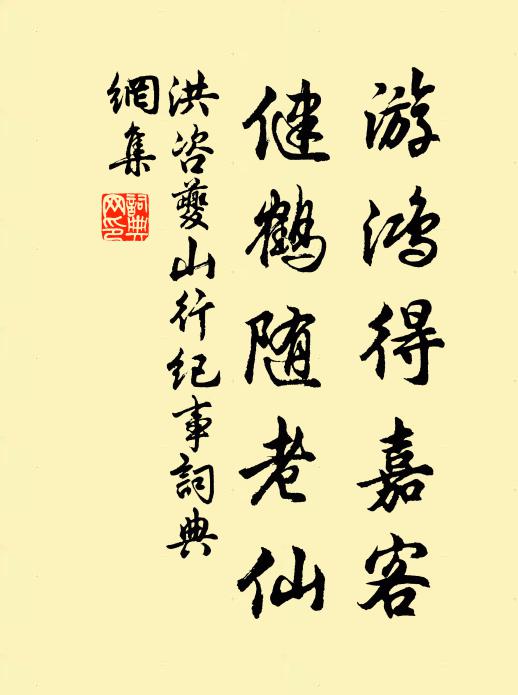 游鸿得嘉客
健鹤随老仙
洪咨夔山行纪事詞典
網集
詞典
网印